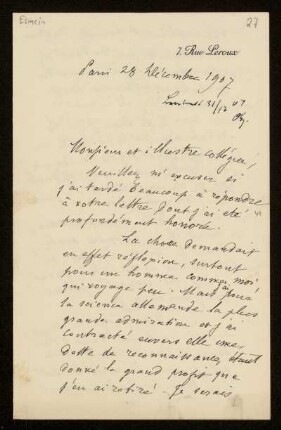 Esmein
27
7, Rue Leroux
Paris 28 Décembre 1907
31/12 07
Monsieur et illustre collègue,
Veuillez m'excuser si
j'ai tardé beaucoup à répondre
à votre lettre dont j'ai été si
profondément honoré.
La chose demandait
en effet réflexion, surtout
pour un homme comme moi
qui voyage peu. Mais j'ai pour
la science allemande la plus
grande admiration et j'ai
contracté envers elle une
dette de reconnaissance, étant
donné le grand profit que
j'en ai retiré. Je serais